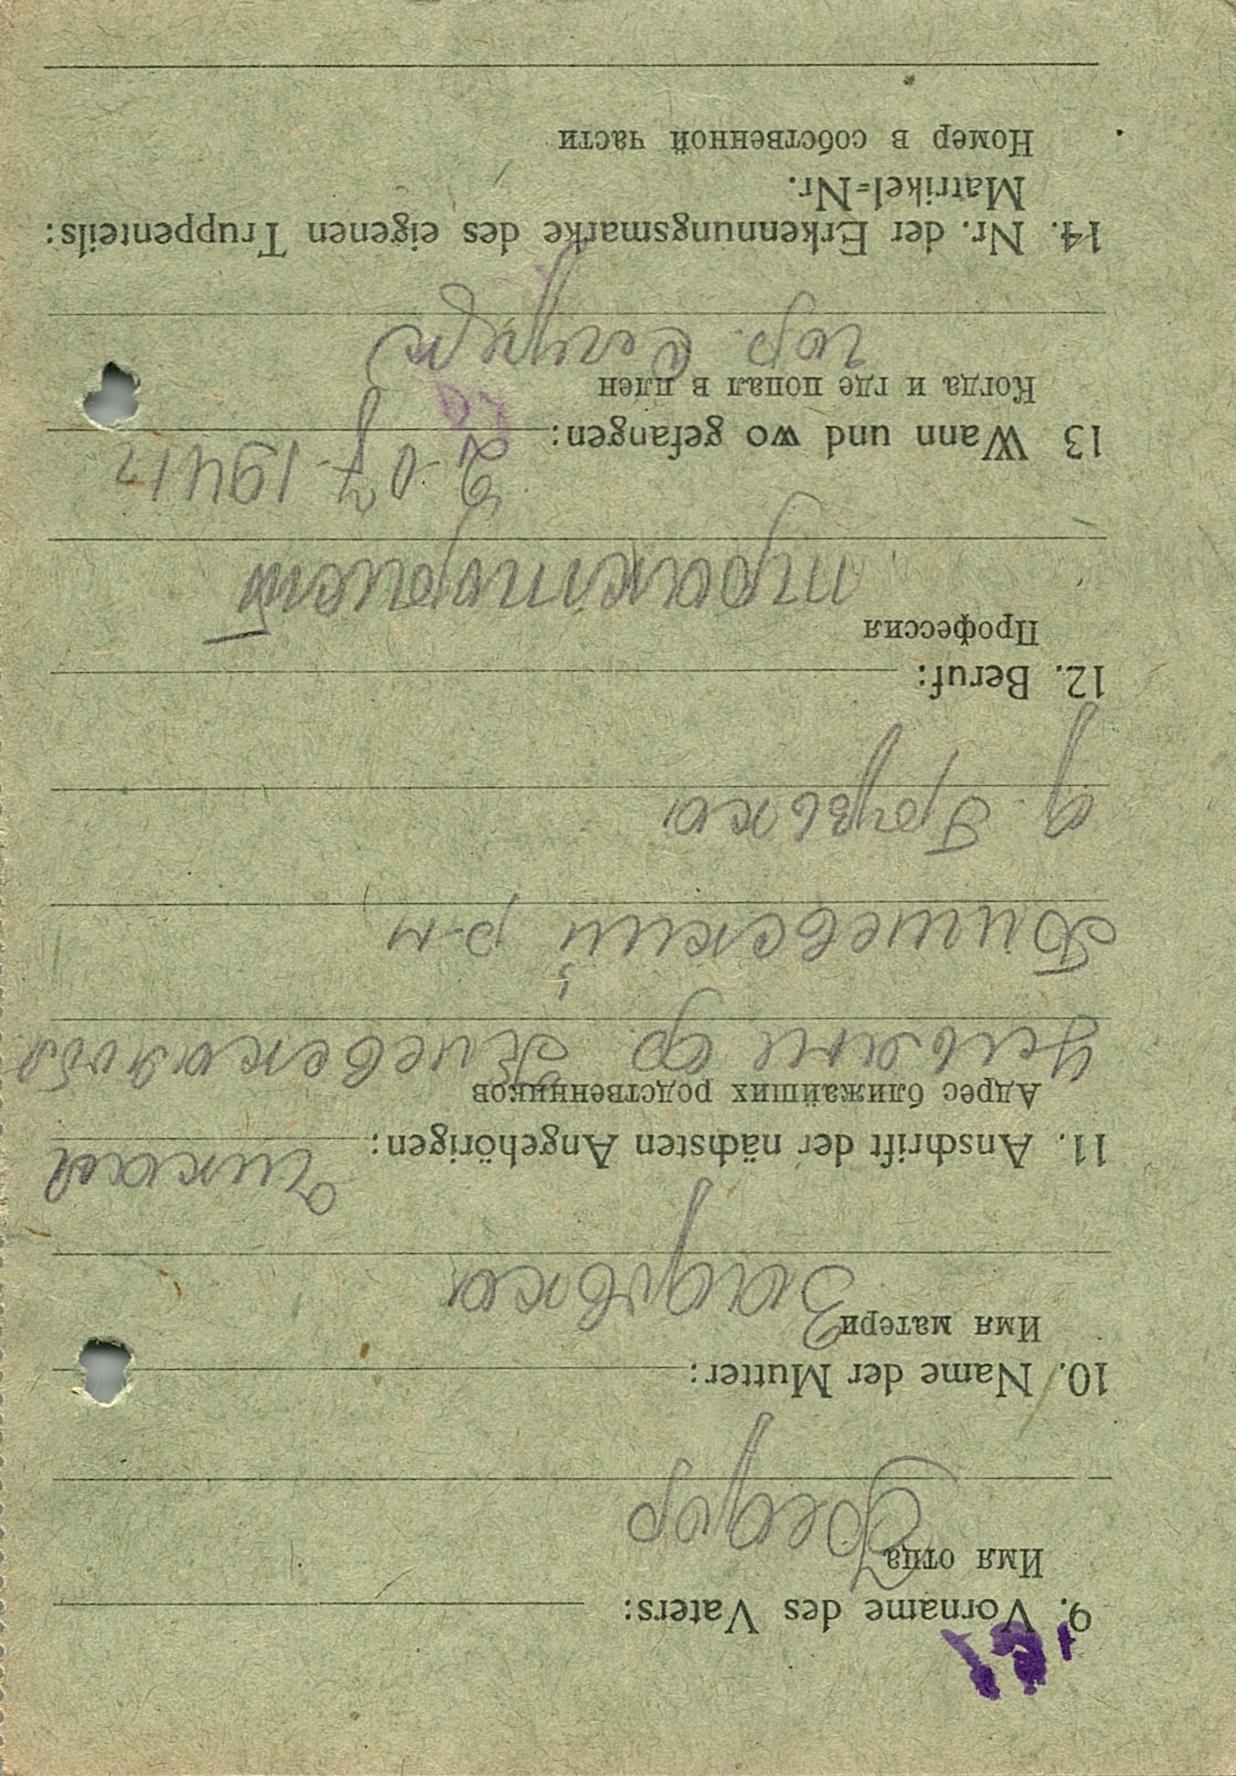 9. Vorname des Vaters:
Имя отца
Федор
10. Name der Mutter:
Имя матери
11. Anschrift der nächsten Angehörigen:
Адрес ближайших родственников
Ульяни Ф. Киевская обл
р-н
д. Грузька
12. Beruf:
Профессия
тракторист
13 Wann und wo gefangen:
2-07-1941 г
Когда и где попал в плен
гор.
14. Nr. der Erkennungsmarke des eigenen Truppenteils:
Matrikel-Nr.
Номер в собственной части